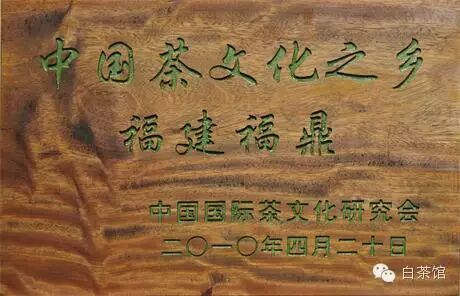 中国茶文化之乡
福建福鼎
中国国际茶文化研究会
二〇一〇年四月二十日
白茶馆